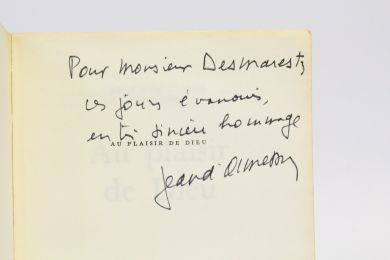 Pour Monsieur Desmarest,
ces jours évanouis,
en très sincère hommage
AU PLAISIR DE DIEU
Jean d'Ormesson
Au plaisir
de Dieu